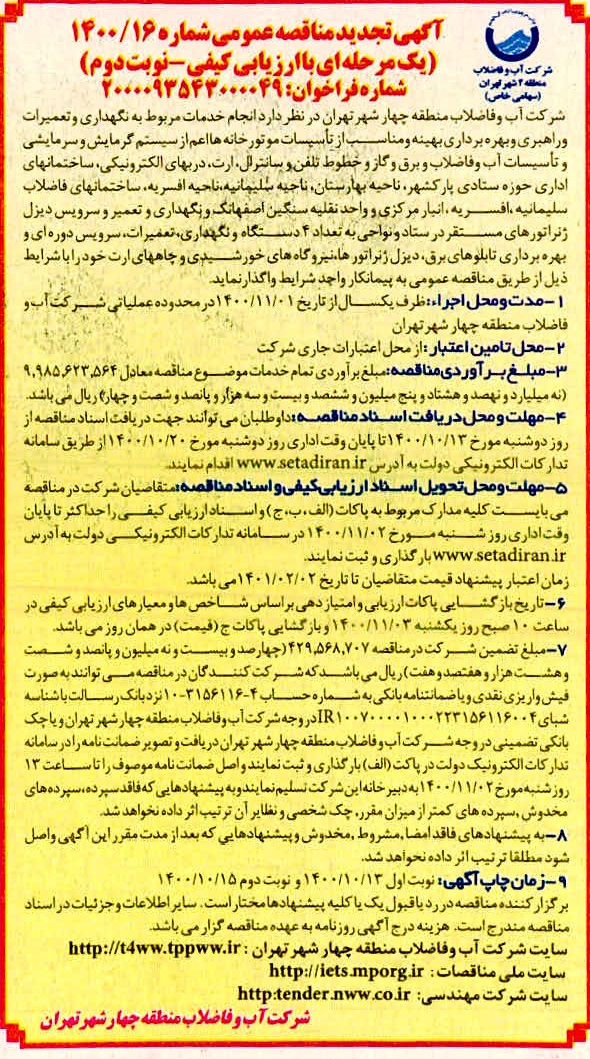 آگهی تجدید مناقصه عمومی شماره ۱۴۰۰/۱۶
(یک مرحله ای با ارزیابی کیفی – نوبت دوم)
شماره فراخوان: ۲۰۰۰۰۹۳۵۴۳۰۰۰۰۴۹
شرکت آب و فاضلاب
منطقه ۴ شهر تهران
(سهامی خاص)
شرکت آب و فاضلاب منطقه چهار شهر تهران در نظر دارد انجام خدمات مربوط به نگهداری و تعمیرات
و راهبری و بهره برداری بهینه و مناسب از تأسیسات موتورخانه ها اعم از سیستم گرمایش و سرمایشی
و تأسیسات آب و فاضلاب و برق و گاز و خطوط تلفن و سانترال، ارت، دربهای الکترونیکی، ساختمانهای
اداری حوزه ستادی پارکشهر، ناحیه بهارستان، ناحیه سلیمانیه، ناحیه افسریه، ساختمانهای فاضلاب
سلیمانیه، افسریه، انبار مرکزی و واحد نقلیه سنگین اصفهانک و نگهداری و تعمیر و سرویس دیزل
ژنراتورهای مستقر در ستاد و نواحی به تعداد ۴ دستگاه و نگهداری، تعمیرات، سرویس دوره ای و
بهره برداری تابلوهای برق، دیزل ژنراتورها، نیروگاه های خورشیدی و چاههای ارت خود را با شرایط
ذیل از طریق مناقصه عمومی به پیمانکار واجد شرایط واگذار نماید.
۱-مدت و محل اجراء: ظرف یکسال از تاریخ ۱۴۰۰/۱۱/۰۱ در محدوده عملیاتی شرکت آب و
فاضلاب منطقه چهار شهر تهران
۲-محل تامین اعتبار: از محل اعتبارات جاری شرکت
۳-مبلغ برآوردی مناقصه: مبلغ برآوردی تمام خدمات موضوع مناقصه معادل ۹,۹۸۵,۶۲۳,۵۶۴
(نه میلیارد و نهصد و هشتاد و پنج میلیون و ششصد و بیست و سه هزار و پانصد و شصت و چهار) ریال می باشد.
۴-مهلت و محل دریافت اسناد مناقصه: داوطلبان می توانند جهت دریافت اسناد مناقصه از
روز دوشنبه مورخ ۱۴۰۰/۱۰/۱۳ تا پایان وقت اداری روز دوشنبه مورخ ۱۴۰۰/۱۰/۲۰ از طریق سامانه
تدارکات الکترونیکی دولت به آدرس www.setadiran.ir اقدام نمایند.
۵-مهلت و محل تحویل اسناد ارزیابی کیفی و اسناد مناقصه: متقاضیان شرکت در مناقصه
می بایست کلیه مدارک مربوط به پاکات (الف، ب، ج) و اسناد ارزیابی کیفی را حداکثر تا پایان
وقت اداری روز شنبه مورخ ۱۴۰۰/۱۱/۰۲ در سامانه تدارکات الکترونیکی دولت به آدرس
www.setadiran.ir بارگذاری و ثبت نمایند.
زمان اعتبار پیشنهاد قیمت متقاضیان تا تاریخ ۱۴۰۱/۰۲/۰۲ می باشد.
۶-تاریخ بازگشایی پاکات ارزیابی و امتیازدهی براساس شاخص ها و معیارهای ارزیابی کیفی در
ساعت ۱۰ صبح روز یکشنبه ۱۴۰۰/۱۱/۰۳ و بازگشایی پاکات ج (قیمت) در همان روز می باشد.
۷-مبلغ تضمین شرکت در مناقصه ۴۲۹,۵۶۸,۷۰۷ (چهارصد و بیست و نه میلیون و پانصد و شصت
و هشت هزار و هفتصد و هفت) ریال می باشد که شرکت کنندگان در مناقصه می توانند به صورت
فیش واریزی نقدی و یا ضمانتنامه بانکی به شماره حساب ۴-۳۱۵۶۱۱۶-۱۰ نزد بانک رسالت با شناسه
شبای IR۱۰۰۷۰۰۰۰۱۰۰۰۲۲۳۱۵۶۱۱۶۰۰۴ در وجه شرکت آب و فاضلاب منطقه چهار شهر تهران و یا چک
بانکی تضمینی در وجه شرکت آب و فاضلاب منطقه چهار شهر تهران دریافت و تصویر ضمانت نامه را در سامانه
تدارکات الکترونیک دولت در پاکت (الف) بارگذاری و ثبت نمایند و اصل ضمانت نامه موصوف را تا ساعت ۱۳
روز شنبه مورخ ۱۴۰۰/۱۱/۰۲ به دبیرخانه این شرکت تسلیم نمایند و به پیشنهادهایی که فاقد سپرده، سپرده های
مخدوش، سپرده های کمتر از میزان مقرر، چک شخصی و نظایر آن ترتیب اثر داده نخواهد شد.
۸-به پیشنهادهای فاقد امضا، مشروط، مخدوش و پیشنهادهایی که بعد از مدت مقرر این آگهی واصل
شود مطلقا ترتیب اثر داده نخواهد شد.
۹-زمان چاپ آگهی: نوبت اول ۱۴۰۰/۱۰/۱۳ و نوبت دوم ۱۴۰۰/۱۰/۱۵
برگزارکننده مناقصه در رد یا قبول یک یا کلیه پیشنهادها مختار است. سایر اطلاعات و جزئیات در اسناد
مناقصه مندرج است. هزینه درج آگهی روزنامه به عهده مناقصه گزار می باشد.
سایت شرکت آب و فاضلاب منطقه چهار شهر تهران : http://t4ww.tppww.ir
سایت ملی مناقصات : http://iets.mporg.ir
سایت شرکت مهندسی: http:tender.nww.co.ir
شرکت آب و فاضلاب منطقه چهار شهر تهران